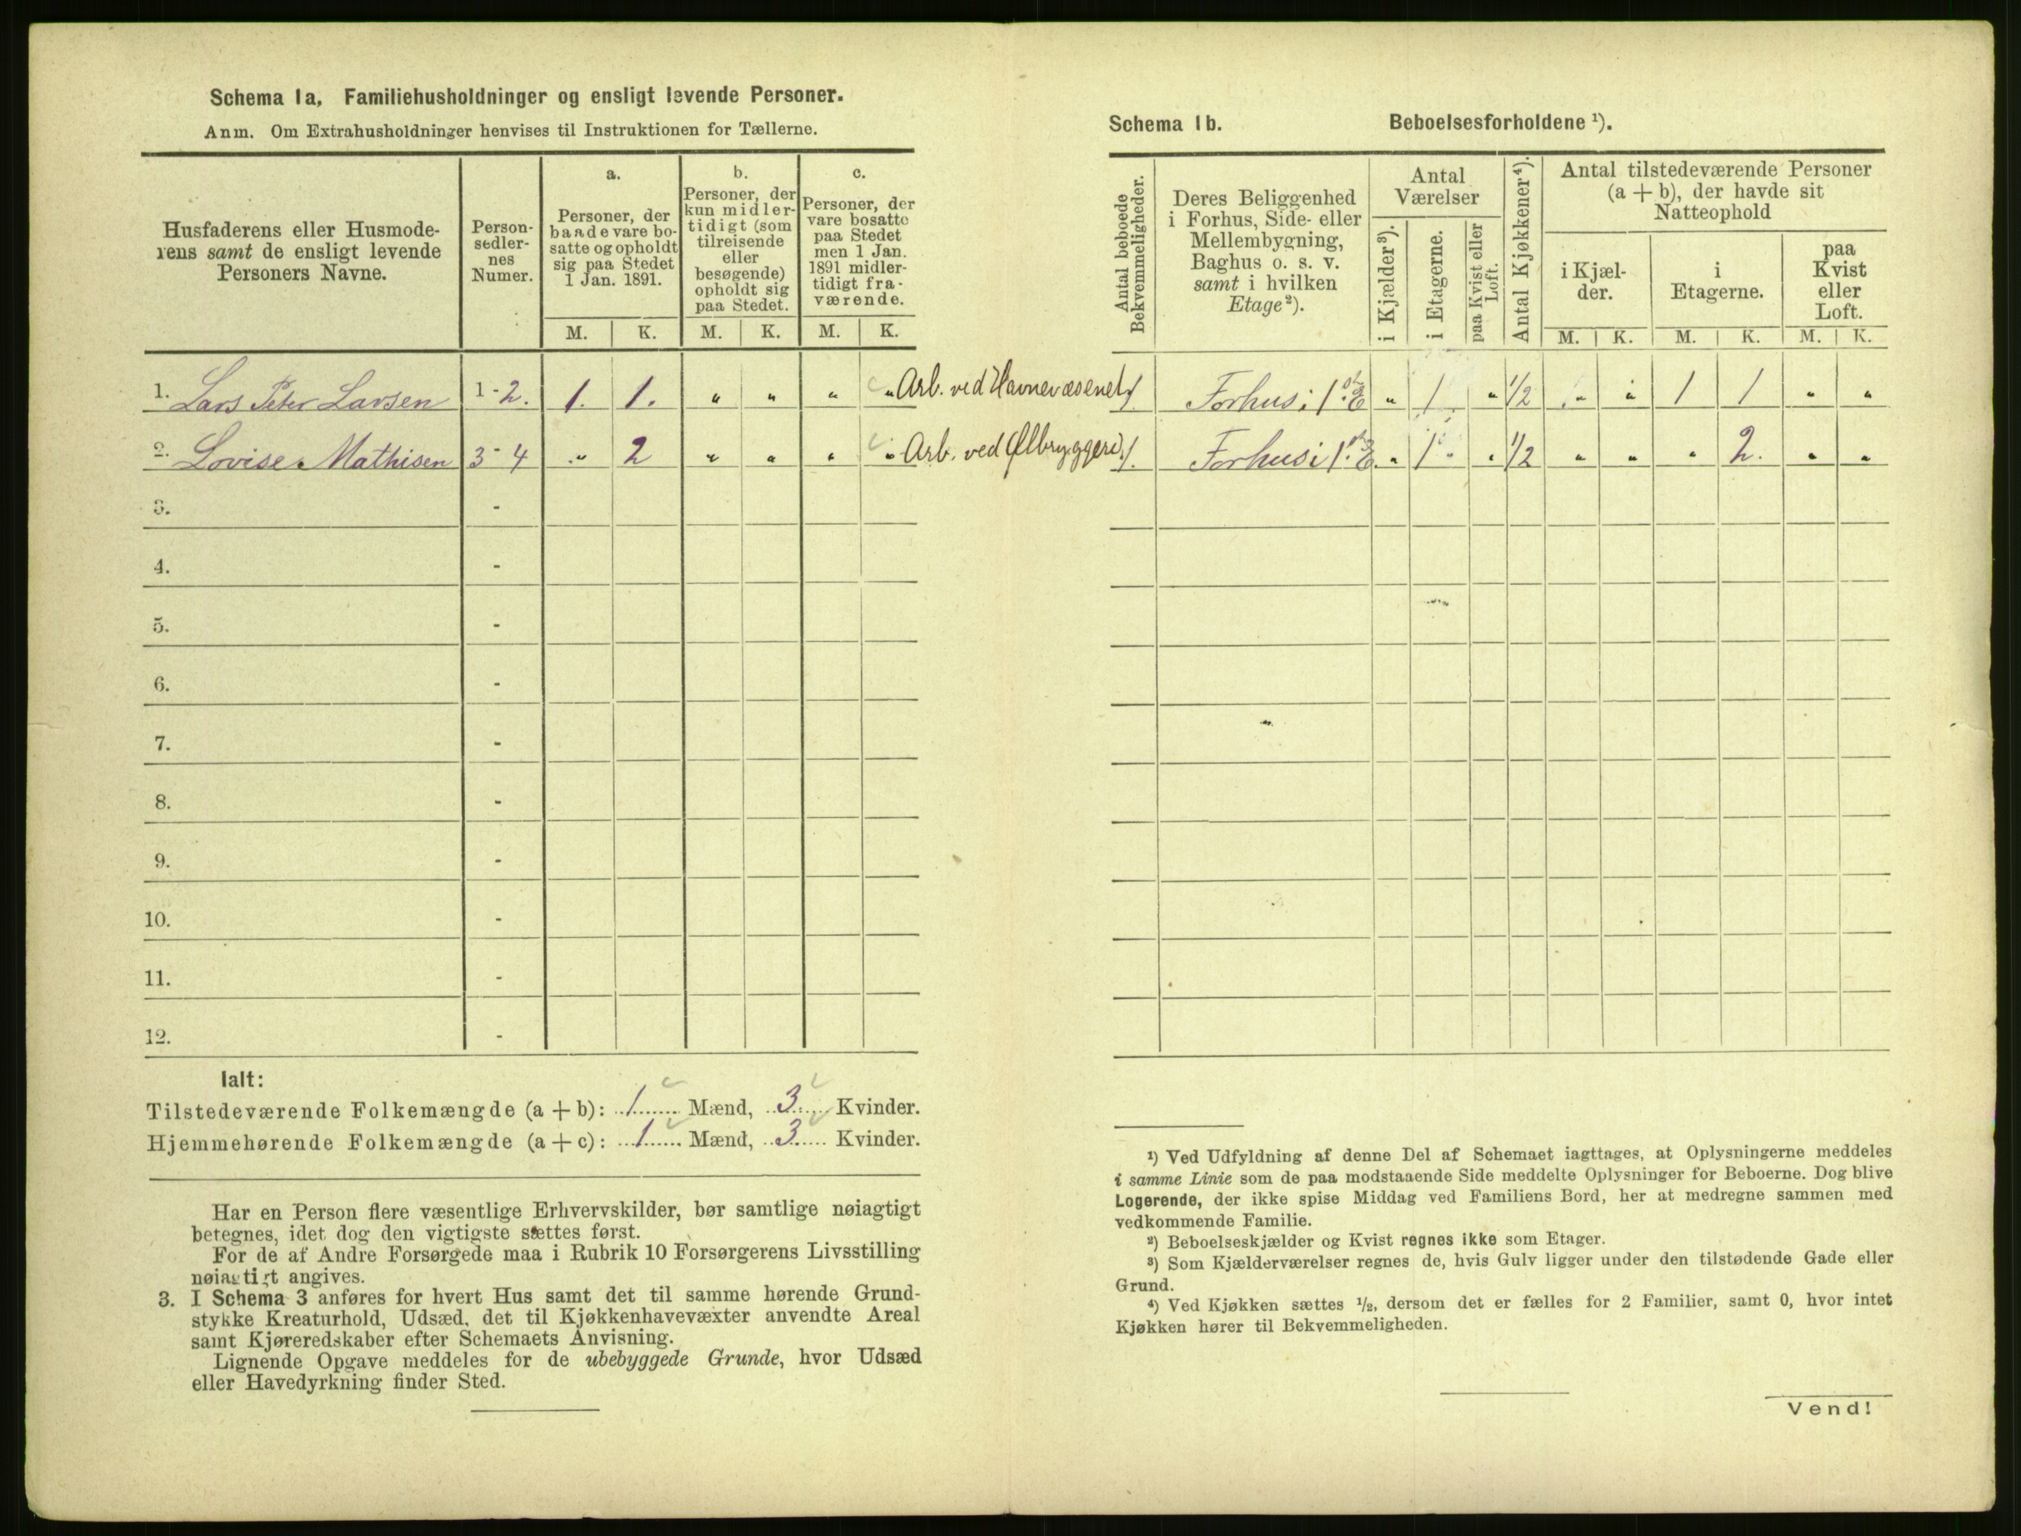 Schema 1a. Familiehusholdninger og ensligt levende Personer.
Anm. Om Extrahusholdninger henvises til Instruktionen for Tællerne.
Husfaderens eller Husmode-
rens samt de ensligt levende
Personers Navne.
Person-
sedler-
nes
Numer.
a.
Personer, der
baade vare bo-
satte og opholdt
sig paa Stedet
1 Jan. 1891.
b.
Personer, der
kun midler-
tidigt (som
tilreisende
eller
besøgende)
opholdt sig
paa Stedet.
c.
Personer, der
vare bosatte
paa Stedet
men 1 Jan.
1891 midler-
tidigt fra-
værende.
M. K. M. K. M. K.
1. Lars Peter Larsen 1-2. 1. 1. " " " " Arb. ved Havnevæsenet
2. Lovise Mathisen 3-4 " 2 " " " " Arb. ved Ølbryggeri
3. -
4. -
5. -
6. -
7. -
8. -
9. -
10. -
11. -
12. -
Ialt:
Tilstedeværende Folkemængde (a + b): 1 Mænd, 3 Kvinder.
Hjemmehørende Folkemængde (a + c): 1 Mænd, 3 Kvinder.
Har en Person flere væsentlige Erhvervskilder, bør samtlige nøiagtigt
betegnes, idet dog den vigtigste sættes først.
For de af Andre Forsørgede maa i Rubrik 10 Forsørgerens Livsstilling
nøiagtigt angives.
3. I Schema 3 anføres for hvert Hus samt det til samme hørende Grund-
stykke Kreaturhold, Udsæd, det til Kjøkkenhavevæxter anvendte Areal
samt Kjøreredskaber efter Schemaets Anvisning.
Lignende Opgave meddeles for de ubebyggede Grunde, hvor Udsæd
eller Havedyrkning finder Sted.
Schema 1b. Beboelsesforholdene ¹).
Antal beboede
Bekvemmeligheder.
Deres Beliggenhed
i Forhus, Side- eller
Mellembygning,
Baghus o. s. v.
samt i hvilken
Etage²).
Antal
Værelser
i Kjælder³).
i Etagerne.
paa Kvist eller
Loft.
Antal Kjøkkener⁴).
Antal tilstedeværende Personer
(a + b), der havde sit
Natteophold
i Kjæl-
der.
i
Etagerne.
paa
Kvist
eller
Loft.
M. K. M. K. M. K.
1 Forhus i 1.ste E " 1 " 1/2 " " 1 1 " "
1. Forhus i 1.ste E. " 1 " 1/2 " " " 2. " "
¹) Ved Udfyldning af denne Del af Schemaet iagttages, at Oplysningerne meddeles
i samme Linie som de paa modstaaende Side meddelte Oplysninger for Beboerne. Dog blive
Logerende, der ikke spise Middag ved Familiens Bord, her at medregne sammen med
vedkommende Familie.
²) Beboelseskjælder og Kvist regnes ikke som Etager.
³) Som Kjælderværelser regnes de, hvis Gulv ligger under den tilstødende Gade eller
Grund.
⁴) Ved Kjøkken sættes ¹/₂, dersom det er fælles for 2 Familier, samt 0, hvor intet
Kjøkken hører til Bekvemmeligheden.
Vend!